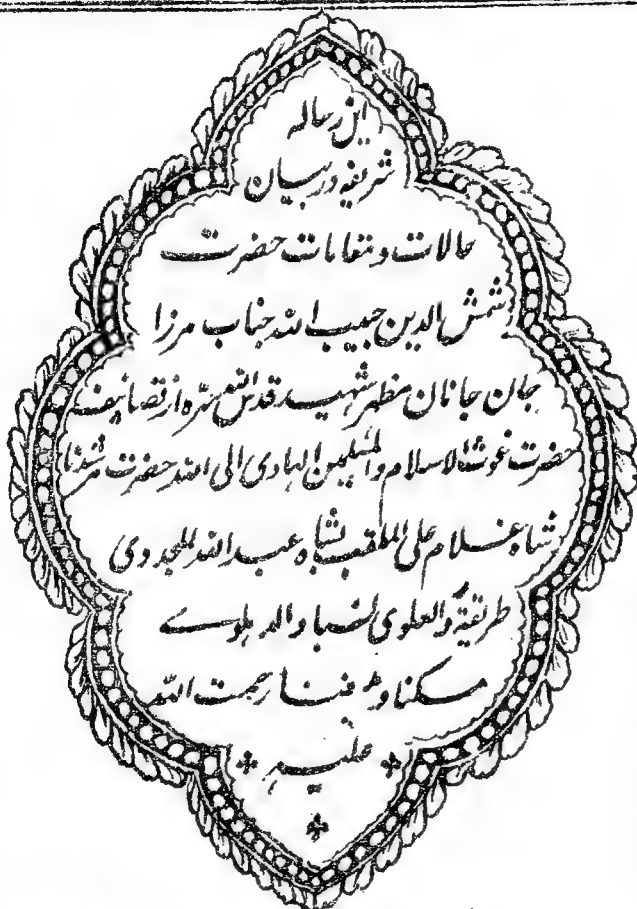 این رساله
شریفه در بیان
حالات و مقامات حضرت
شمس الدین حبیب الله جناب مرزا
جان جانان مظهر شهید قدس الله سره از تصانیف
حضرت غوث الاسلام والمسلمین الهادی الی الله حضرت مرشدنا
شاه غلام علی الملقب بشاه عبدالله المجددی
طریقةً والعلوی نسباً والدهلوے
مسکناً و مدفناً رحمت الله
علیه